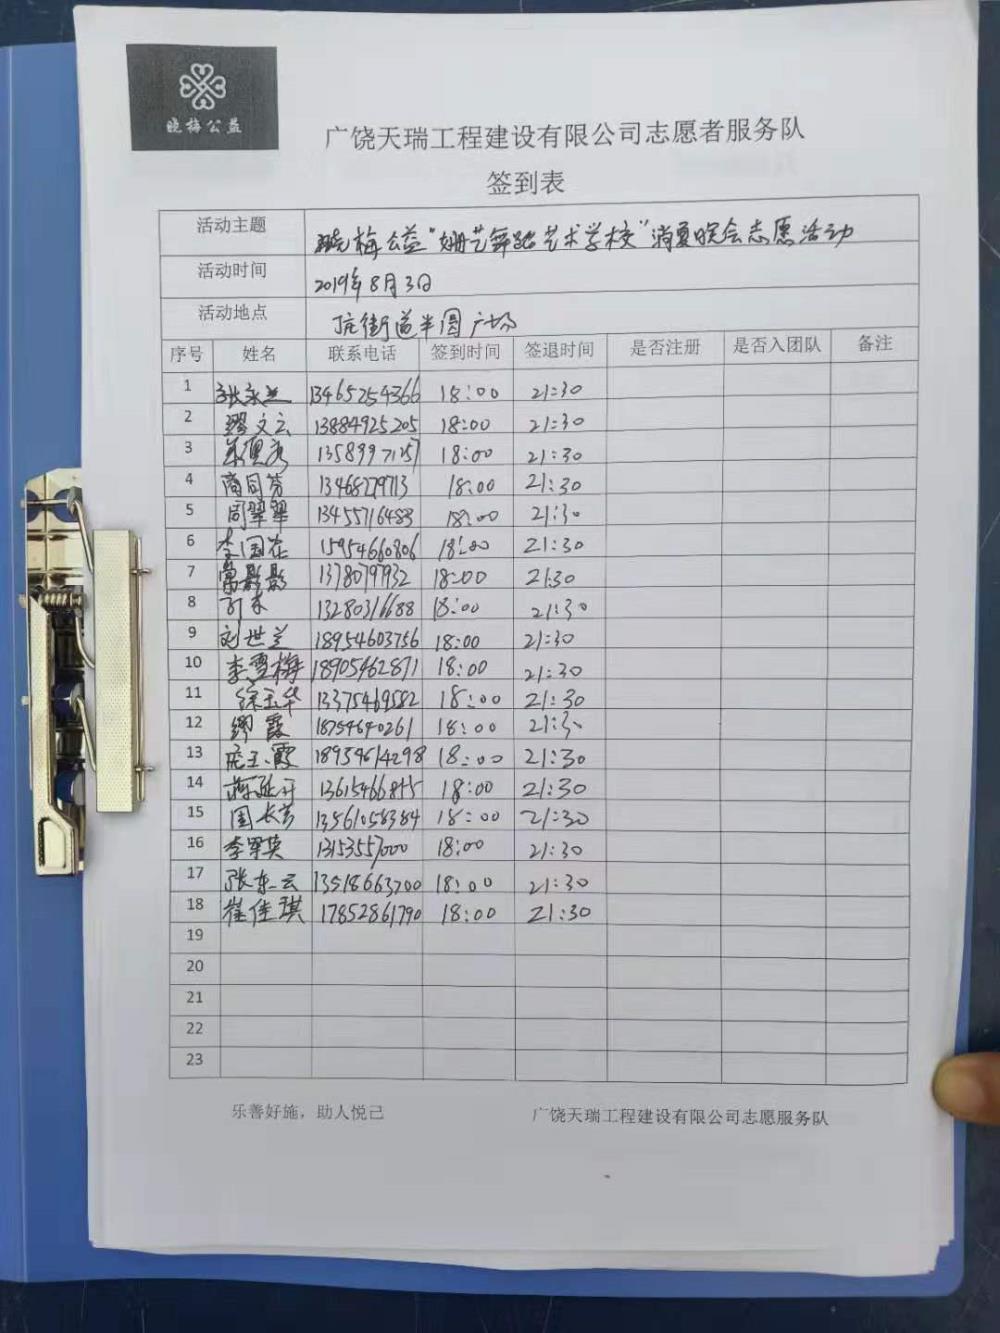 晓梅公益
广饶天瑞工程建设有限公司志愿者服务队
签到表
活动主题 晓梅公益"姗艺舞蹈艺术学校"消夏晚会志愿活动
活动时间 2019年8月3日
活动地点 街道半圆广场
序号 姓名 联系电话 签到时间 签退时间 是否注册 是否入团队 备注
1 张永兰 13465254366 18:00 21:30
2 缪文云 13884925205 18:00 21:30
3 18:00 21:30
4 商同芳 13468279713 18:00 21:30
5 周翠翠 13455716483 18:00 21:30
6 李国花 15954660806 18:00 21:30
7 常影影 13780797932 18:00 21:30
8 13280316688 18:00 21:30
9 刘世兰 18954603756 18:00 21:30
10 李雪梅 18905462871 18:00 21:30
11 徐玉华 13375469582 18:00 21:30
12 缪霞 18754640261 18:00 21:30
13 庞玉霞 18954614298 18:00 21:30
14 18:00 21:30
15 国长芳 13561058384 18:00 21:30
16 李翠英 13153557000 18:00 21:30
17 张东云 13518663700 18:00 21:30
18 崔佳琪 17852861790 18:00 21:30
19
20
21
22
23
乐善好施，助人悦己 广饶天瑞工程建设有限公司志愿服务队